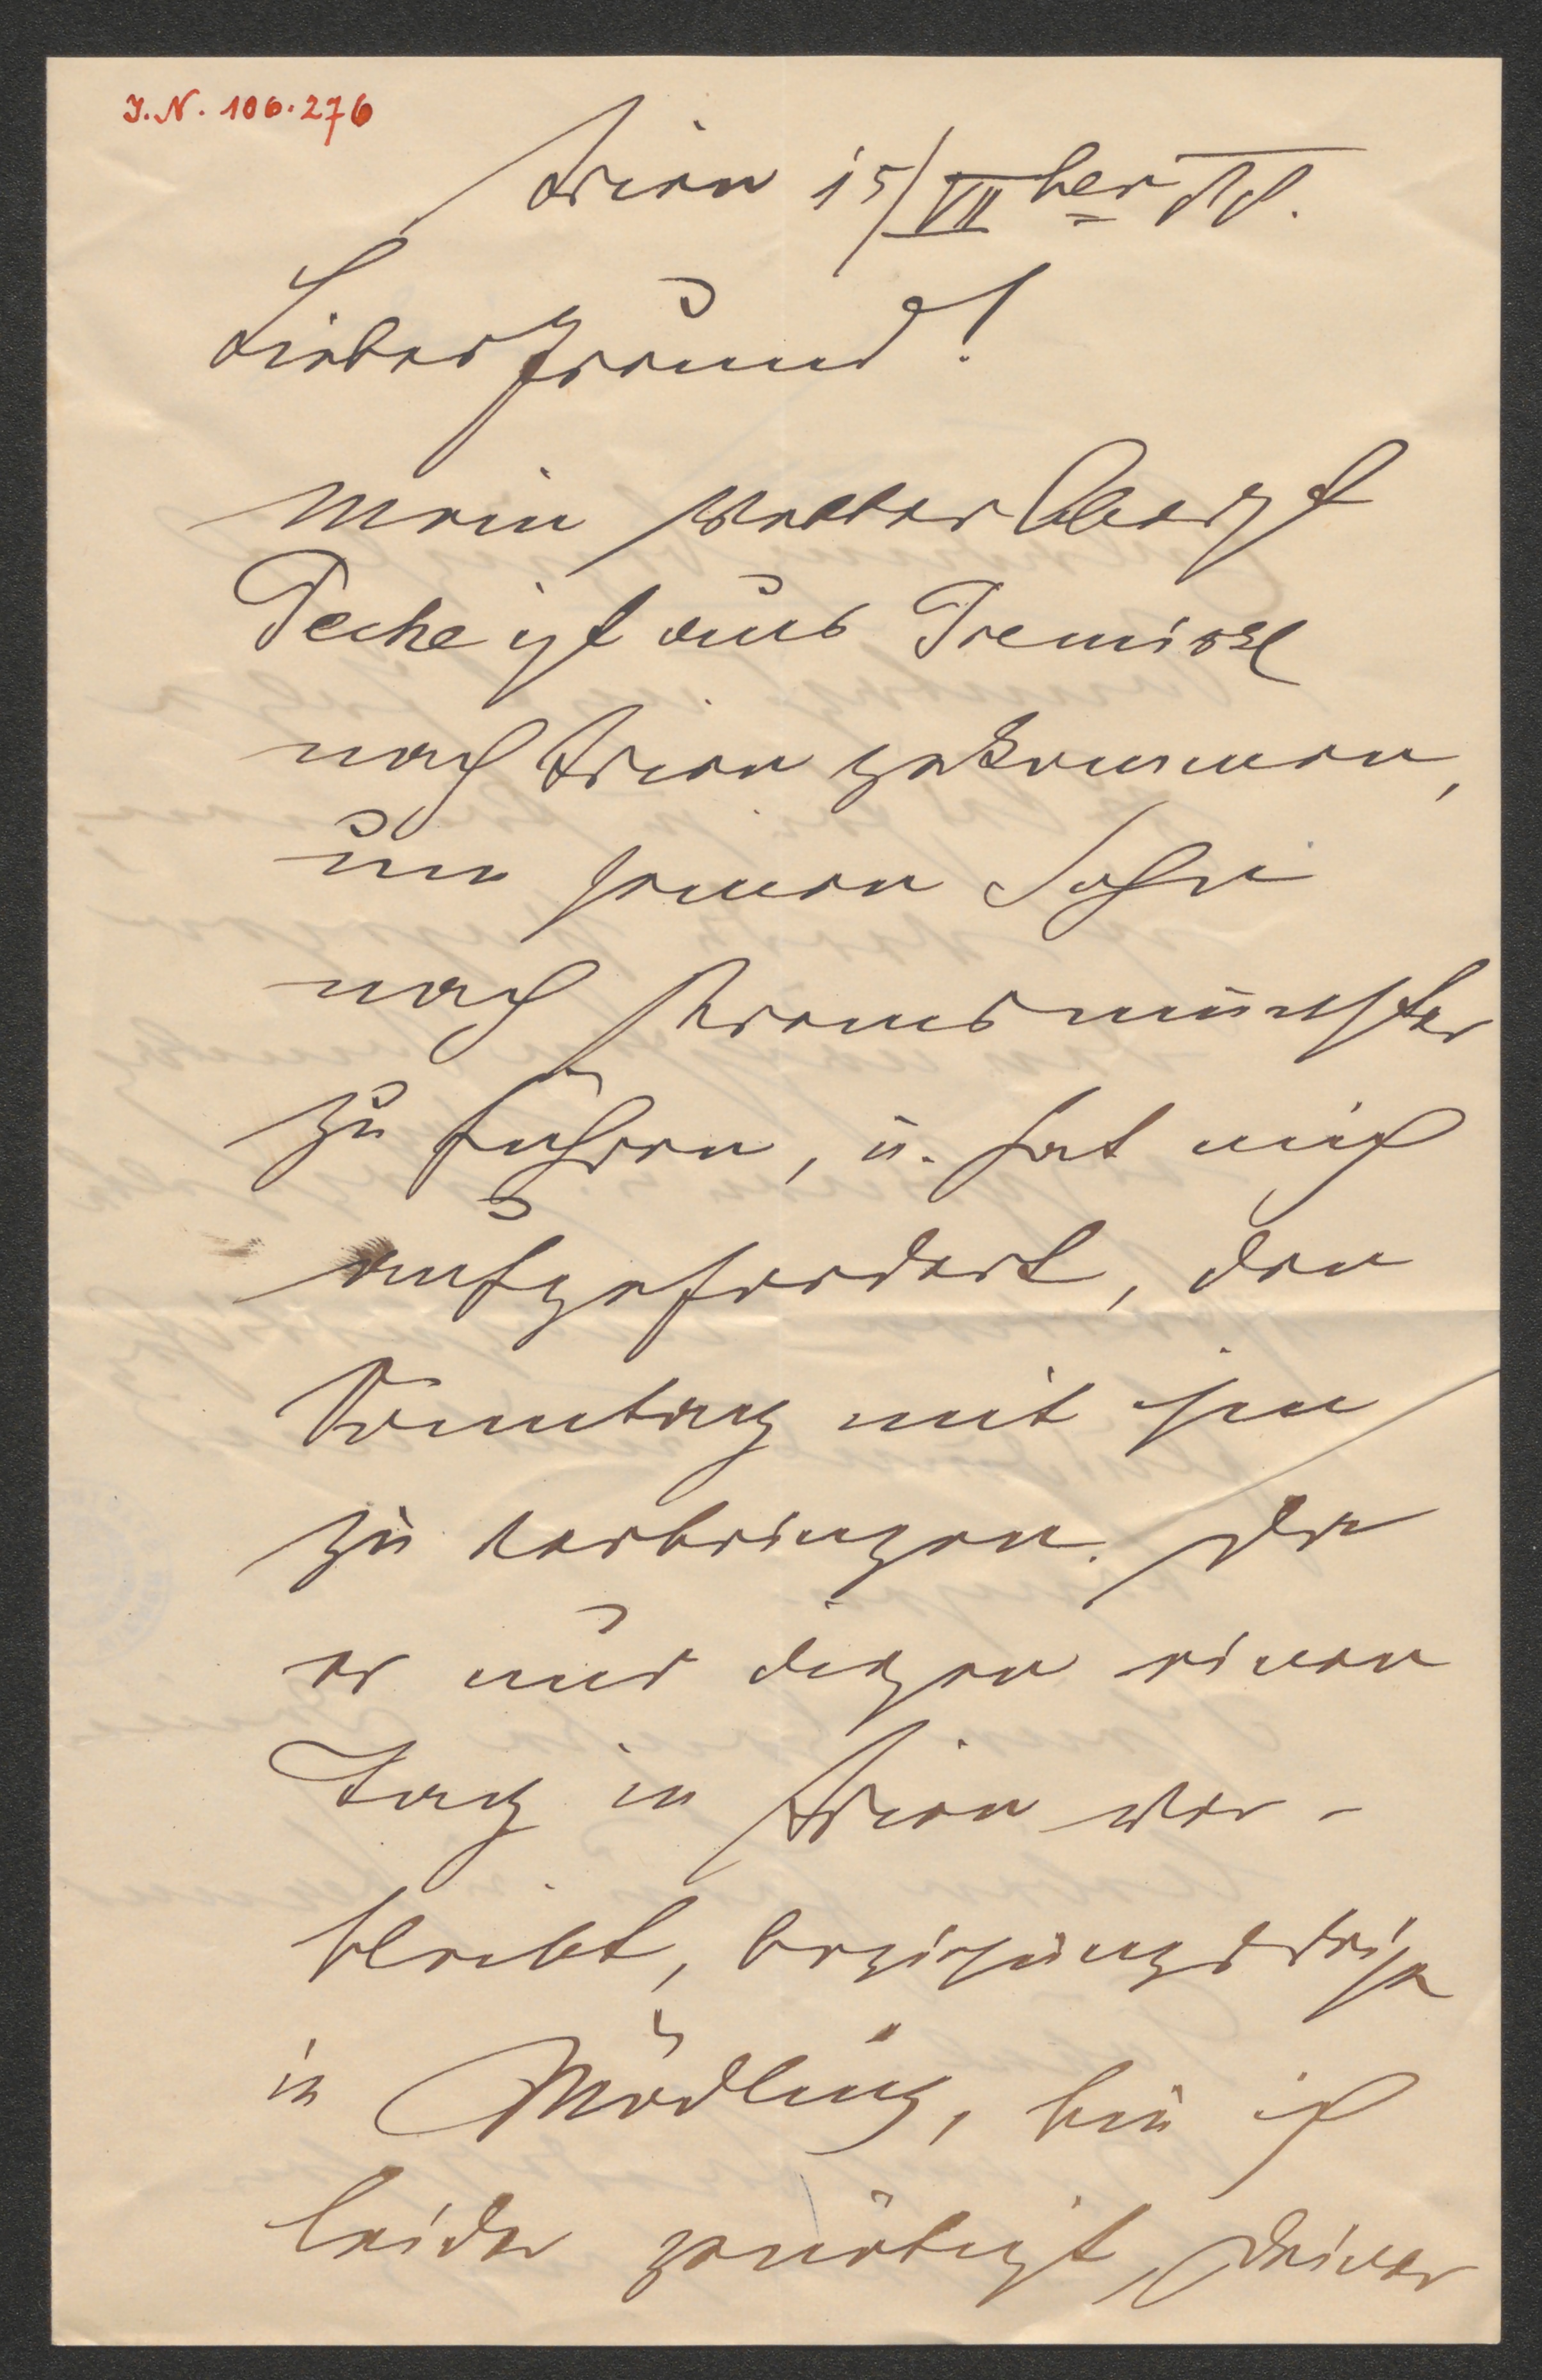 J.N. 106.276
Wien 15/VII ber 88.
Lieber Freund!
Mein Vetter Oberst
Peche ist aus Premissl
nach Wien gekommen,
um seinen Sohn
nach Kremsmünster
zu führen, u. hat mich
aufgefordert, den
Sonntag mit ihm
zu verbringen. Da
er nur diesen einen
Tag in Wien ver-
bleibt, beziehungsweise
in Mödling, bin ich
leider genötigt, Deiner